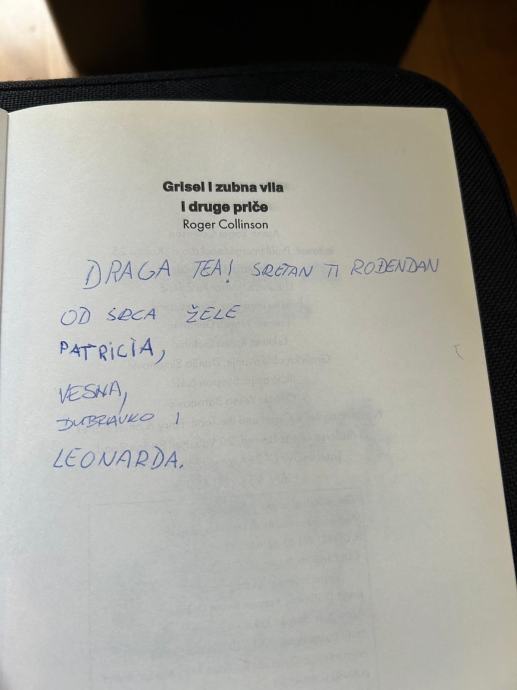 Grisel i zubna vila
i druge priče
Roger Collinson
DRAGA TEA! SRETAN TI ROĐENDAN
OD SRCA ŽELE
PATRICIA,
VESNA,
DUBRAVKO I
LEONARDA.